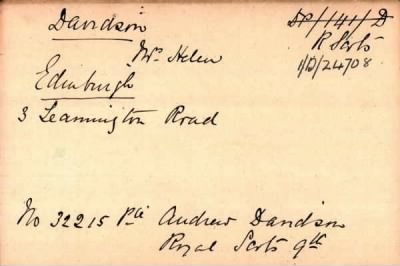 Davidson
DP/1141/D
Mrs Helen
R Scots
1/D/24708
Edinburgh
3 Leamington Road
No 32215 Pte Andrew Davidson
Royal Scots 9th